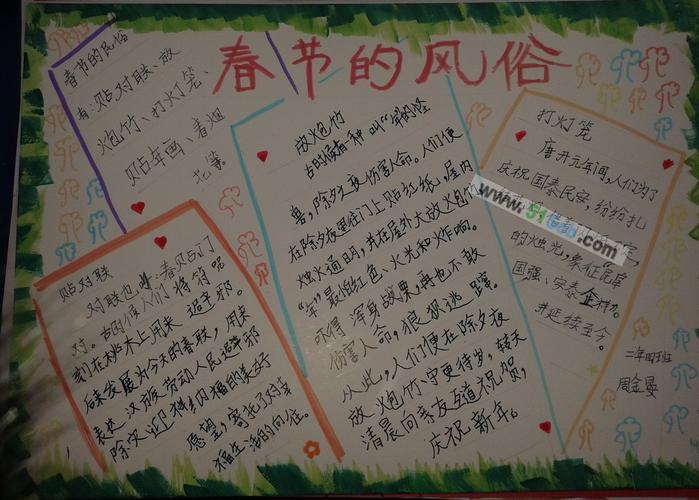 春节的风俗
春节的民俗
有：贴对联、放
炮竹、打灯笼、
贴年画、看烟
花等。
放炮竹
古时候有一种叫“年”的怪
兽，除夕夜伤害人命。人们便
在除夕夜里往门上贴红纸，屋内
烛火通明，并在屋外大放炮竹
“年”最怕红色、火光和炸响。
吓得浑身战栗，再也不敢
伤害人命，狼狈逃蹿。
从此，人们便在除夕夜
放炮竹、守更待岁，转天
清晨向亲友道祝贺，
庆祝新年。
打灯笼
唐开元年间，人们为了
庆祝国泰民安，纷纷扎
的烛光，象征民阜
国强、安泰
并延续至今。
www.51
.com
贴对联
对联也叫春贴门
对。古时候人们将符咒
刻在桃木上用来
避邪。
后来发展为今天的春联，用来
表达汉族劳动人民
避邪
除灾迎祥
美好
愿望，寄托了对幸
福生活的向往。
二年四班
周金晏